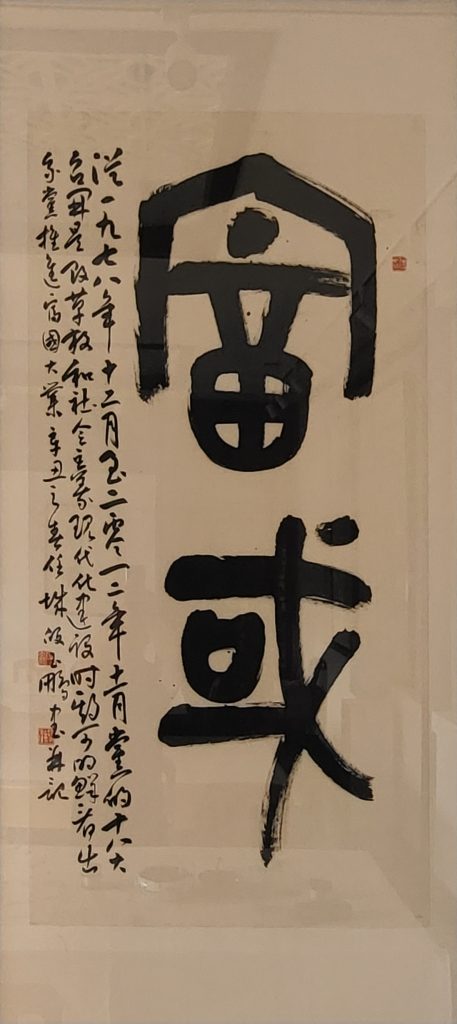 富或
從一九七八年十二月至二零一二年十一月黨的十八大
召開是改革放和社会主義現代化建設時期可的鮮出
我黨推進富國大業辛丑之春任城鵬書并記